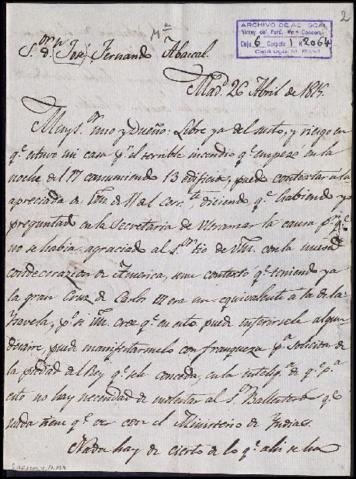 2
ARCHIVO DE ABASCAL
Caja 6 Carpeta 1 n.º 2064
S.or D.n José Fernando Abascal.
Mad.d 26 Abril de 1815.
Muy S.or mio y Dueño: Libre ya del susto, y riesgo en
q.e estuvo mi casa p.r el terrible incendio q.e empezó en la
noche del 17 consumiendo 13 edificios, puedo contextar a la
apreciada de Vm. de 11 del corr.te diciendo q.e habiendo yo
preguntado en la Secretaria de Ultramar la causa p.r q.e
no se habia agraciado al S.or tio de Vm. con la nueva
condecoracion de America, me contextó q.e teniendo ya
la gran Cruz de Carlos III era un equivalente a la de
Isavela, p.o si Vm. cree q.e en esto pued inferirsele algun
desaire, puede manifestarmelo con franqueza p.a solicitar
de la piedad del Rey q.e se le conceda, en la intelig.a de q.e p.a
esto no hay necesidad de molestar al S.r Ballesteros q.e
nada tiene q.e ver con el Ministerio de Indias.
Nada hay de cierto de lo q.e ahi se ha